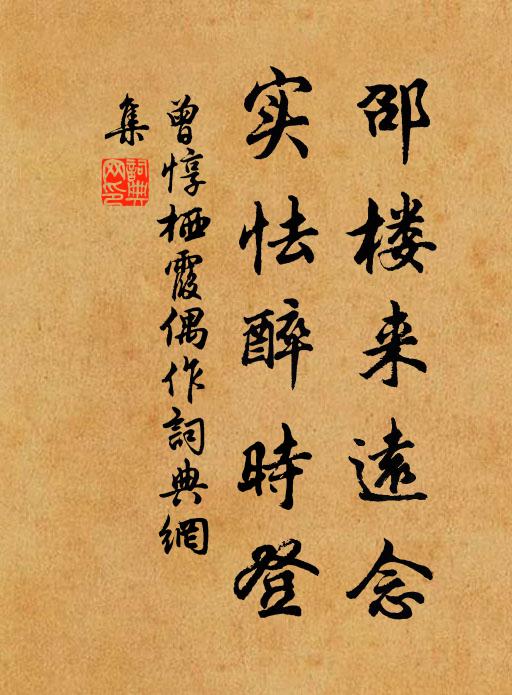 邵楼来遠念
实怯醉時登
曾惇栖霞偶作詞典網
集
詞典網印